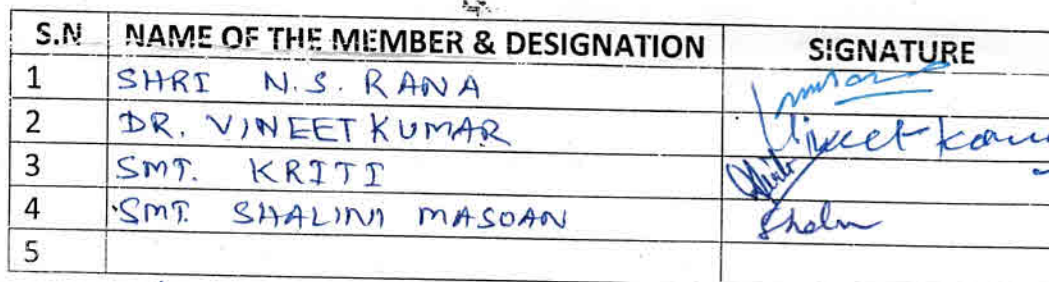 S.N NAME OF THE MEMBER & DESIGNATION SIGNATURE
1 SHRI N.S. RANA
2 DR. VINEET KUMAR Vineet Kum
3 SMT. KRITI Kriti
4 SMT. SHALINI MASOAN Shalu
5